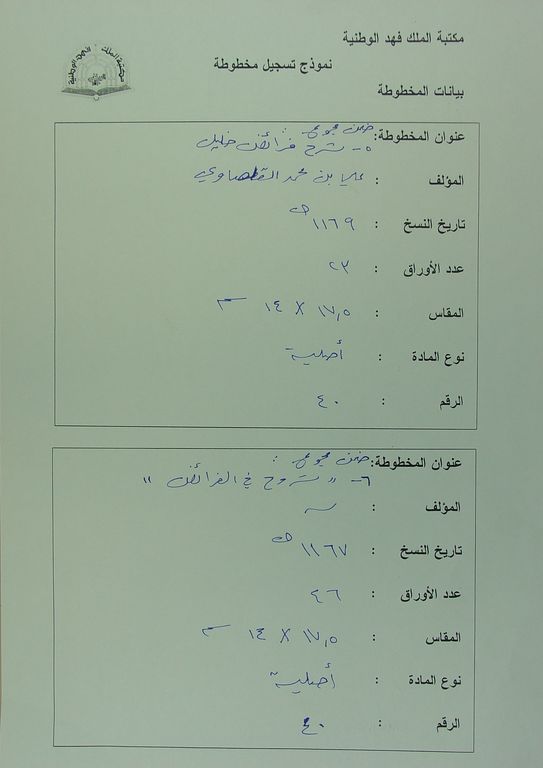 مكتبة الملك فهد الوطنية
نموذج تسجيل مخطوطة
بيانات المخطوطة
عنوان المخطوطة: ضمن مجموع
٥- شرح فرائض خليل
المؤلف : علي بن محمد
تاريخ النسخ : ١١٦٩ هـ
عدد الأوراق : ٢٣
المقاس : ١٧,٥ X ١٤ سم
نوع المادة : أصلية
الرقم : ٤٠
عنوان المخطوطة: ضمن مجموع :
٦- "شروح في الفرائض"
المؤلف :
تاريخ النسخ : ١١٦٧ هـ
عدد الأوراق : ٤٦
المقاس : ١٧,٥ X ١٤ سم
نوع المادة : أصلية
الرقم : ٤٠